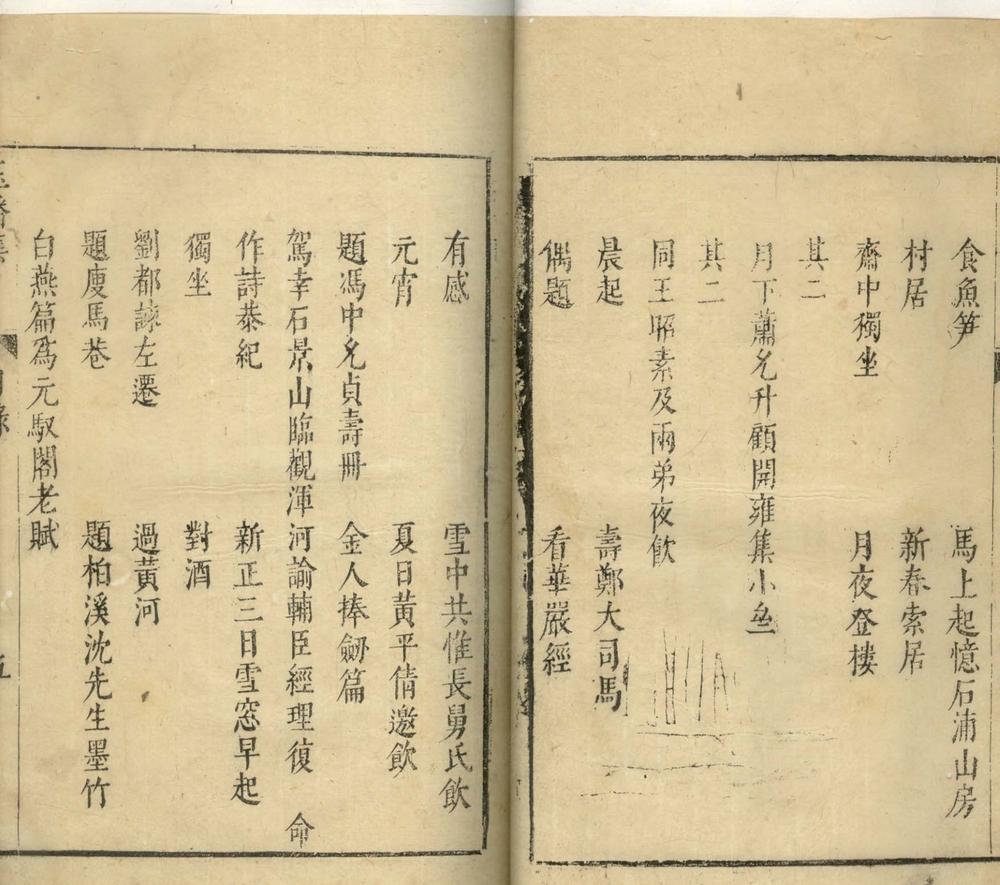 食魚笋　馬上起憶石浦山房
村居　新春索居
齋中獨坐　月夜登樓
其二
月下蕭允升顧開雍集小坐
其二
同王昭素及兩弟夜飲
晨起　壽鄭大司馬
偶題　看華嚴經
有感　雪中共惟長舅氏飲
元宵　夏日黃平倩邀飲
題馮中允貞壽冊　金人捧劒篇
駕幸石景山臨觀渾河諭輔臣經理復　命
作詩恭紀　新正三日雪窓早起
獨坐　對酒
劉都諫左遷　過黃河
題廋馬巷　題柏溪沈先生墨竹
白燕篇爲元馭閣老賦